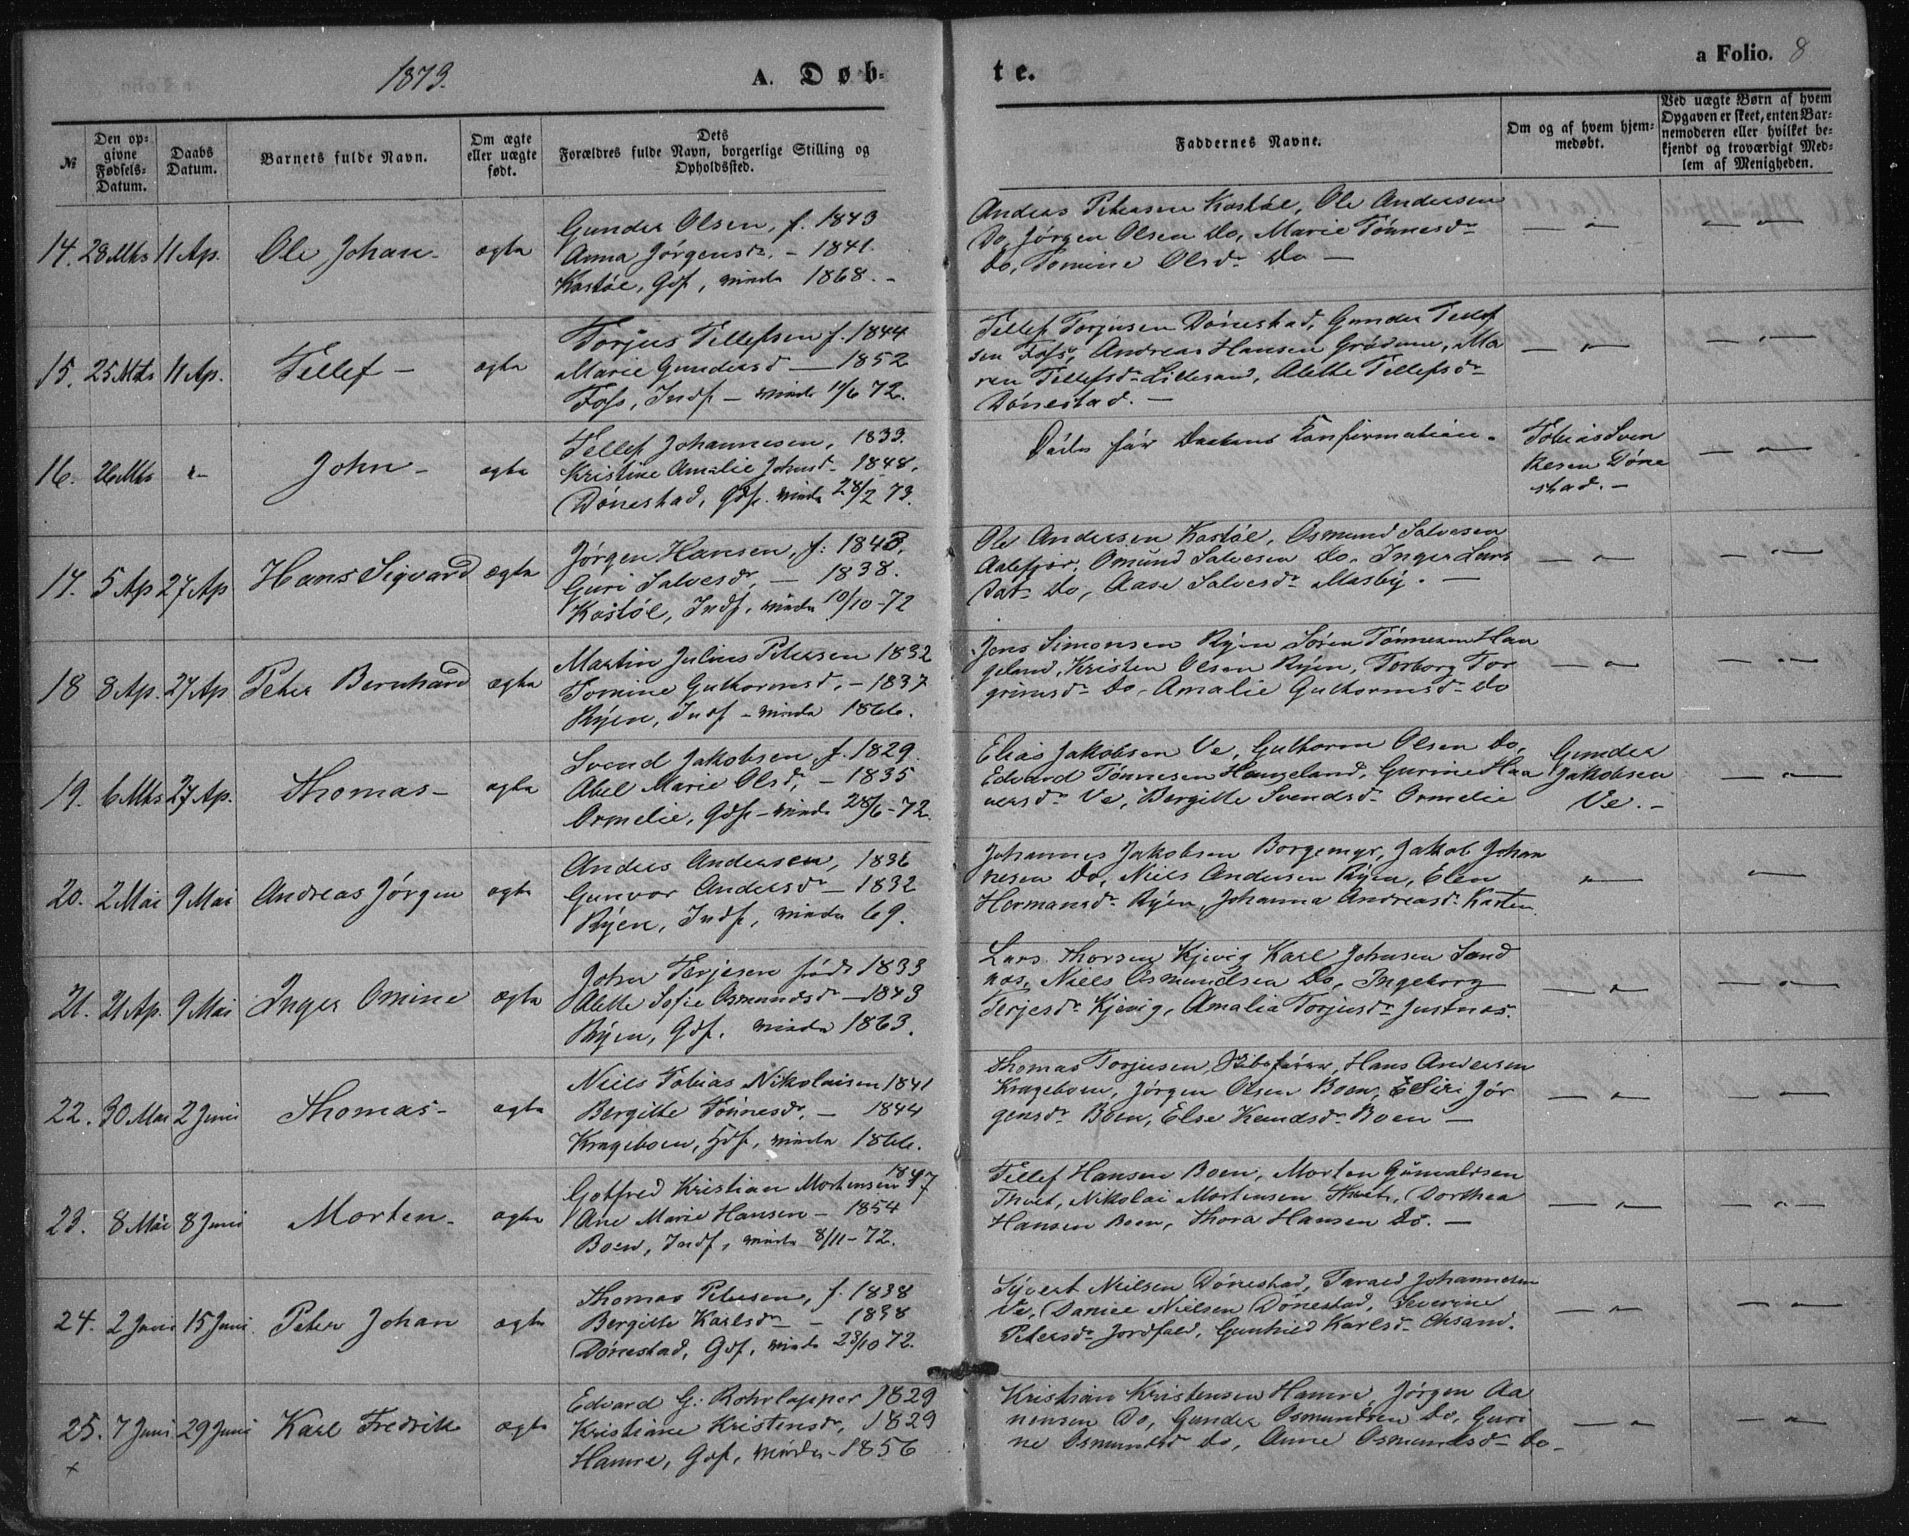 1873.
A. Døb-
te.
a Folio. 8
№
Den op-
givne
Fødsels-
Datum.
Daabs
Datum.
Barnets fulde Navn.
Om ægte
eller uægte
født.
Dets
Forældres fulde Navn, borgerlige Stilling og
Opholdssted.
Faddernes Navne.
Om og af hvem hjem-
medøbt.
Ved uægte Børn af hvem
Opgaven er skeet, enten Bar-
nemoderen eller hvilket be-
kjendt og troværdigt Med-
lem af Menigheden.
14. 28 Mts 11 Ap. Ole Johan - ægte
Gunder Olsen, f. 1843
Anna Jørgensdr. - 1841.
Kostøl, Gdf, minde 1868. -
Anders Petersen Kostøl, Ole Andersen
Do, Jørgen Olsen Do, Marie Tønnesdr
Do, Tomine Olsdr Do —
15. 25 Mts 11 Ap. Tellef - ægte
Torjus Tellefsen f. 1844
Marie Gundersd — 1852
Foss, Indf - minde 11/6 72.
Tellef Torjusen Dønestad, Gunder Tellef
sen Foss, Andreas Hansen Grødum, Ma
ren Tellefsd. Lillesand, Alette Tellefsdr
Dønestad. —
16. 26 Mts " John - ægte
Tellef Johannesen, 1833.
Kristine Amalie Johnsd - 1848.
Dønestad, Gdf. minde 28/2 73.
Døde før Daabens Konfirmation.
Tobias Sven
kesen Døne
stad. -
17. 5 Ap 27 Ap Hans Sigvard ægte
Jørgen Hansen, f: 1843.
Guri Salvesdr, - 1838.
Kostøl, Indf, minde 10/10 - 72
Ole Andersen Kostøl, Osmund Salvesen
Aalefjær, Omund Salvesen Do, Inger Lars
dat. Do, Aase Salvesdr Mosby. —
18 8 Ap. 27 Ap. Peter Bernhard ægte
Martin Julius Petersen 1832
Tomine Guthormsd. - 1837
Ryen, Indf - minde 1866.
Jens Simonsen Ryen Søren Tønnesen Hau
geland, Kristen Olsen Ryen, Torborg Tor
grimsdr Do, Amalie Guthormsdr Do
19. 6 Mts 27 Ap. Thomas - ægte
Svend Jakobsen, f. 1829.
Abel Marie Olsd, - 1835
Ormelie, Gdf - minde 28/6 - 72.
Elias Jakobsen Ve, Guthorm Olsen Do,
Edvard Tønnesen Haugeland, Gurine Haa
versdr Ve, Bergitte Svendsdr Ormelie
Gunder
Jakobsen
Ve. -
20. 2 Mai 9 Mai Andreas Jørgen ægte
Anders Andersen, 1836
Gunvor Andersdr - 1832
Ryen, Indf, minde 69.
Johannes Jakobsen Borgemyr, Jakob Johan
nesen Do, Niels Andersen Ryen, Elen
Hermansdr Ryen, Johanna Andreasd. Kosten.
21. 21 Ap. 9 Mai Inger Omine ægte
John Terjesen født 1833
Alette Sofie Osmundsdr - 1843
Ryen, Gdf. minde 1863.
Lars Thorsen Kjevig Karl Johnsen Sand
nes, Niels Osmundsen Do, Ingeborg
Terjesdr Kjevig, Amalia Torjusdr Justnæs.
22. 30 Mai 2 Juni Thomas - ægte
Niels Tobias Nikolaisen 1841
Bergitte Tønnesdr, - 1844
Krageboen, Gdf, minde 1866.
Thomas Torjusen, Skibsfører, Hans Andersen
Krageboen, Jørgen Olsen Boen, Elsie Jør
gensdr Boen, Else Knudsdr Boen —
23. 8 Mai 8 Juni Morten - ægte
Gotfred Kristian Mortensen 1847
Ane Marie Hansen - 1854
Boen, Indf, minde 8/11 - 72.
Tellef Hansen Boen, Morten Gunvaldsen
Tveit, Nikolai Mortensen Tveit, Dorthea
Hansen Boen, Thora Hansen Do. —
24. 2 Juni 15 Juni. Peter Johan ægte
Thomas Petersen, f. 1838
Bergitte Karlsdr - 1838
Dønestad, Gdf, minde 23/10 72.
Syvert Nielsen Dønestad, Tarald Johannesen
Ve, Daniel Nielsen Dønestad, Severine
Petersdr Jordfald, Gunhild Karlsdr Chsand.
25. 7 Juni 29 Juni Karl Fredrik ægte
Edvard G. Rohrlapper 1829
Kristiane Kristensdr, 1829
Hamre, Gdf, minde - 1856
Kristian Kristensen Hamre, Jørgen Aa
nensen Do, Gunder Osmundsen Do, Guri
ne Osmundsd Do, Anne Osmundsdr Do -
×